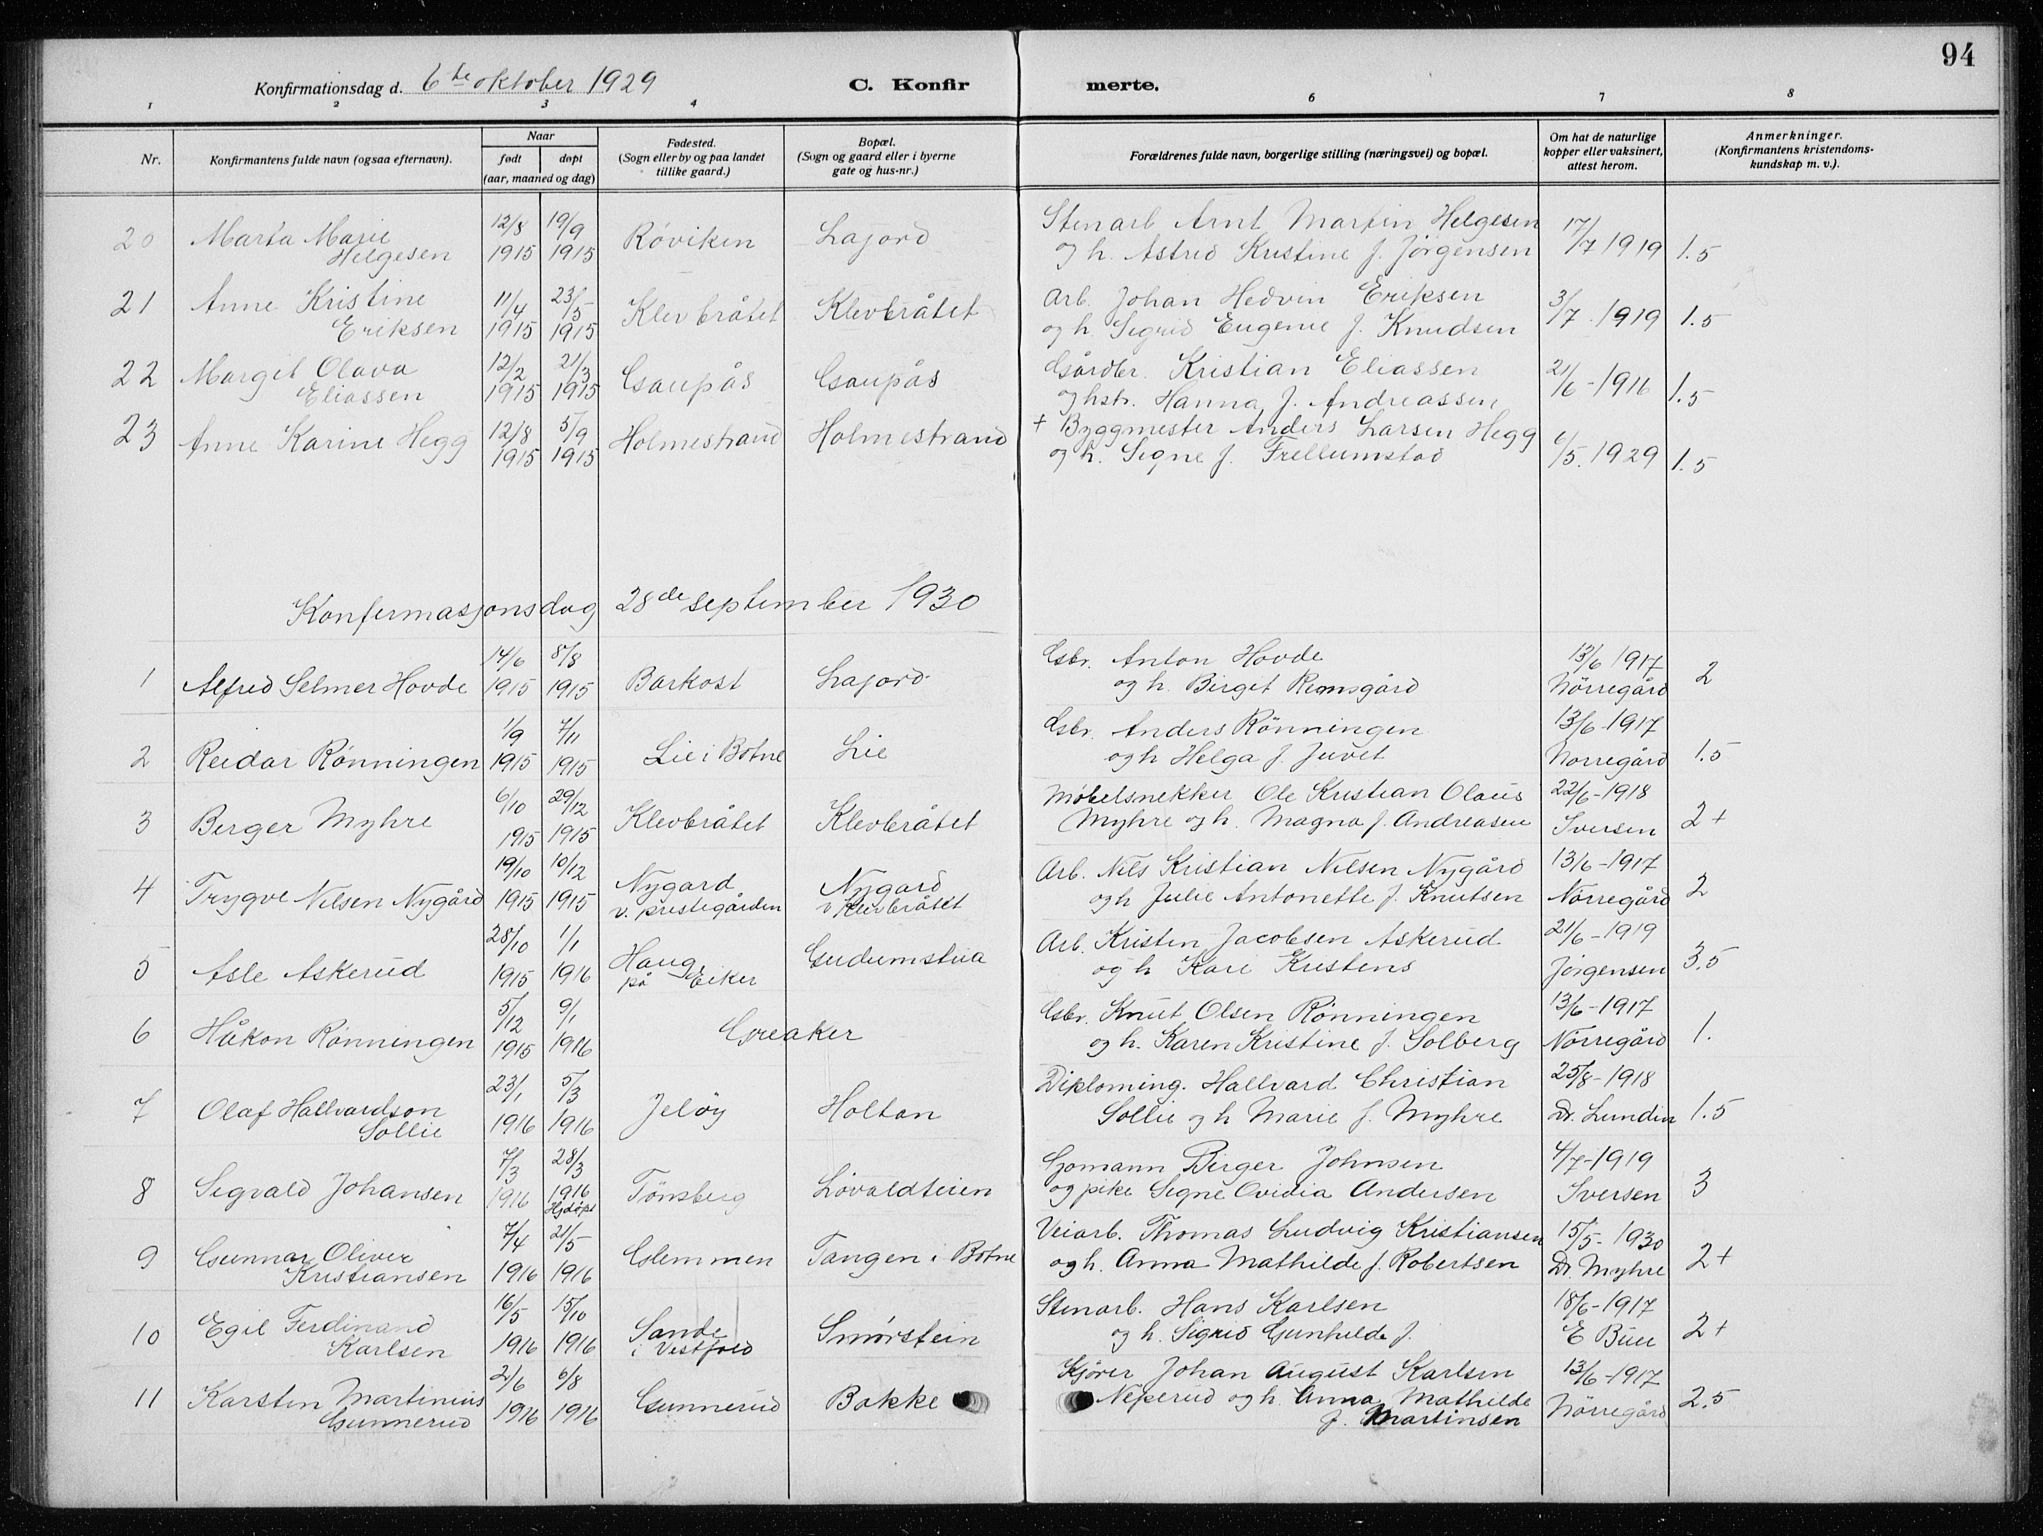 94
Konfirmationsdag d. 6te oktober 1929 C. Konfir merte.
1 2 3 4 6 7 8
Nr. Konfirmantens fulde navn (ogsaa efternavn). Naar født døpt (aar, maaned og dag) Fødested. (Sogn eller by og paa landet tillike gaard.) Bopæl. (Sogn og gaard eller i byerne gate og hus-nr.) Forældrenes fulde navn, borgerlige stilling (næringsvei) og bopæl. Om hat de naturlige kopper eller vaksinert, attest herom. Anmerkninger. (Konfirmantens kristendomskundskap m. v.).
20 Marta Marie Helgesen 12/8 1915 19/9 1915 Røviken Lajord Stenarb Arnt Martin Helgesen og h. Astrid Kristine f. Jørgensen 17/7 1919 1.5
21 Anne Kristine Eriksen 11/4 1915 23/5 1915 Klevbråtet Klevbråtet Arb. Johan Hedvin Eriksen og h. Sigrid Eugenie f. Knudsen 3/7 1919 1.5
22 Margit Olava Eliassen 12/2 1915 21/3 1915 Gaupås Gaupås Gårdbr. Kristian Eliassen og hstr. Hanna f. Andreassen 21/6-1916 1.5
23 Anne Karine Hegg 12/8 1915 5/9 1915 Holmestrand Holmestrand + Byggmester Anders Larsen Hegg og h. Signe f. Frellumstad 6/5. 1929 1.5
Konfermasjonsdag 28de september 1930
1 Alfred Selmer Hovde 14/6 1915 8/8 1915 Barkost Lajord Gbr. Anton Hovde og h. Birget Remsgård 13/6 1917 Nørregård 2
2 Reidar Rønningen 1/9 1915 7/11 1915 Lie i Botne Lie Gbr. Anders Rønningen og h Helga f. Juvet 13/6-1917 Nørregård 1.5
3 Berger Myhre 6/10 1915 29/12 1915 Klevbråtet Klevbråtet Møbelsnekker Ole Kristian Olaus Myhre og h. Magna f. Andreasen 22/6-1918 Iversen 2+
4 Trygve Nilsen Nygård 19/10 1915 10/12 1915 Nygard v. prestegården Nygard v Klevbråtet Arb. Nils Kristian Nilsen Nygård og h Julie Antonette f. Knutsen 13/6-1917 Nørregård 2
5 Asle Askerud 28/10 1915 1/1 1916 Haug på Eiker Gudumstua Arb. Kristen Jacobsen Askerud og h Kari Kristens 21/6-1919 Jørgensen 3.5
6 Håkon Rønningen 5/12 1915 9/1 1916 Greaker Gbr. Knut Olsen Rønningen og h. Karen Kristine f. Solberg 13/6-1917 Nørregård 1.
7 Olaf Hallvardson Sollie 23/1 1916 5/3 1916 Jeløy Holtan Diploming. Hallvard Christian Sollie og h Marie f. Myhre 25/8-1918 Dr. Lundin 1.5
8 Sigvald Johansen 7/3 1916 28/3 1916 Hjdøpt Tønsberg Løvaldteien Sjømann Birger Johnsen og pike Signe Ovidia Andersen 4/7-1919 Iversen 3
9 Gunnar Oliver Kristiansen 7/4 1916 21/5 1916 Glemmen Tangen i Botne Veiarb. Thomas Ludvig Kristiansen og h. Anna Mathilde f. Robertsen 15/5-1930 Dr. Myhre 2+
10 Egil Ferdinand Karlsen 16/5 1916 15/10 1916 Sande i Vestfold Smørstein Stenarb. Hans Karlsen og h. Sigrid Gunhilde f. 18/6-1917 E Bue 2+
11 Karsten Martinius Gunnerud 2/6 1916 6/8 1916 Gunnerud Bakke Kjører Johan August Karlsen Neperud og h. Anna Mathilde f. Martinsen 13/6-1917 Nørregård 2.5